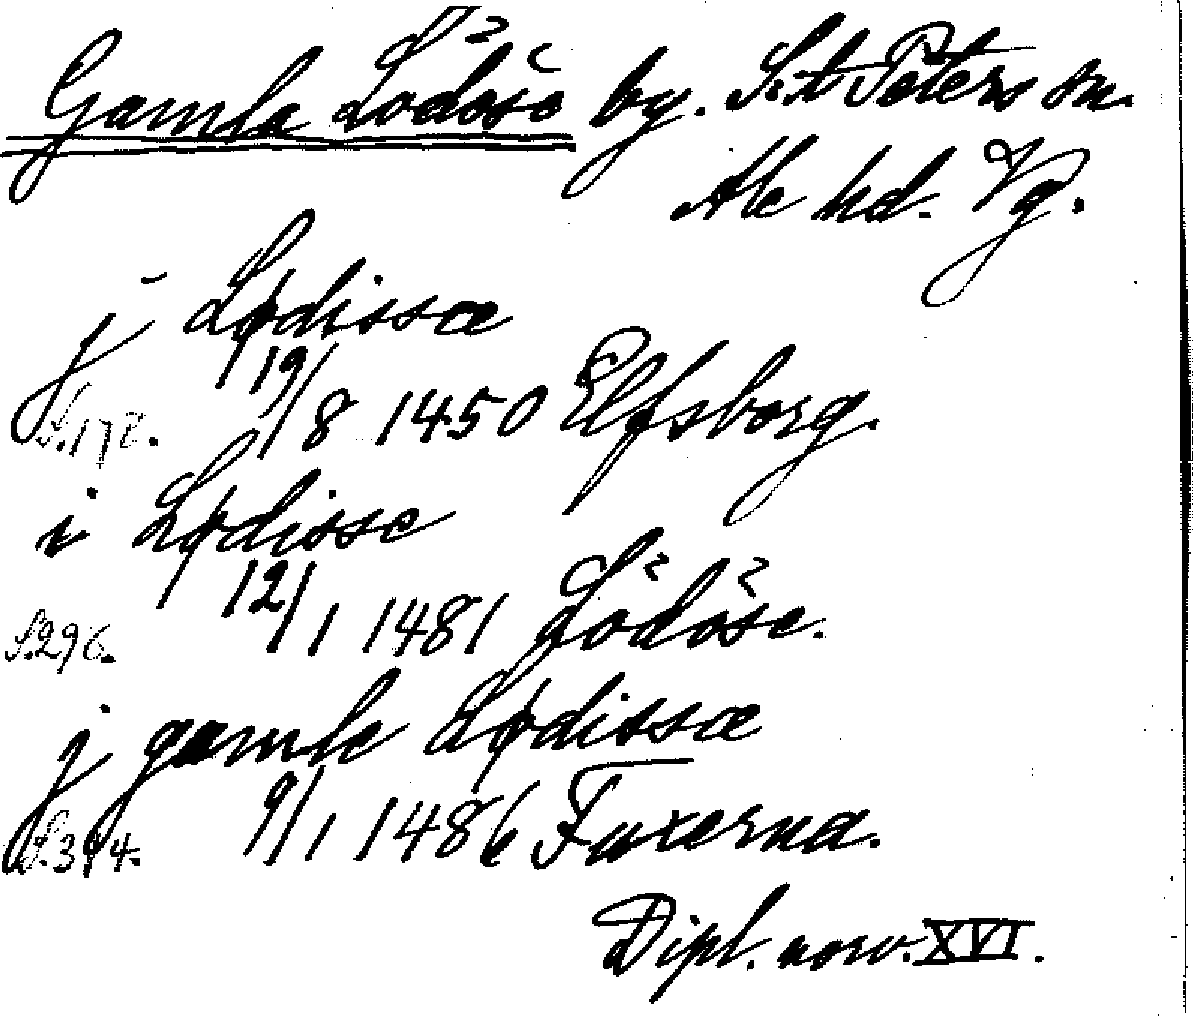 Gamla Lödöse by. S:t Peters sn.
Ale hd. Vg.
j Lødissæ
S. 178. 19/8 1450 Elfsborg.
i Lødisse
S. 296. 12/1 1481 Lödöse.
j gamle Lødissæ
S. 314. 9/1 1486 Fuxerna.
Dipl. norv. XVI.